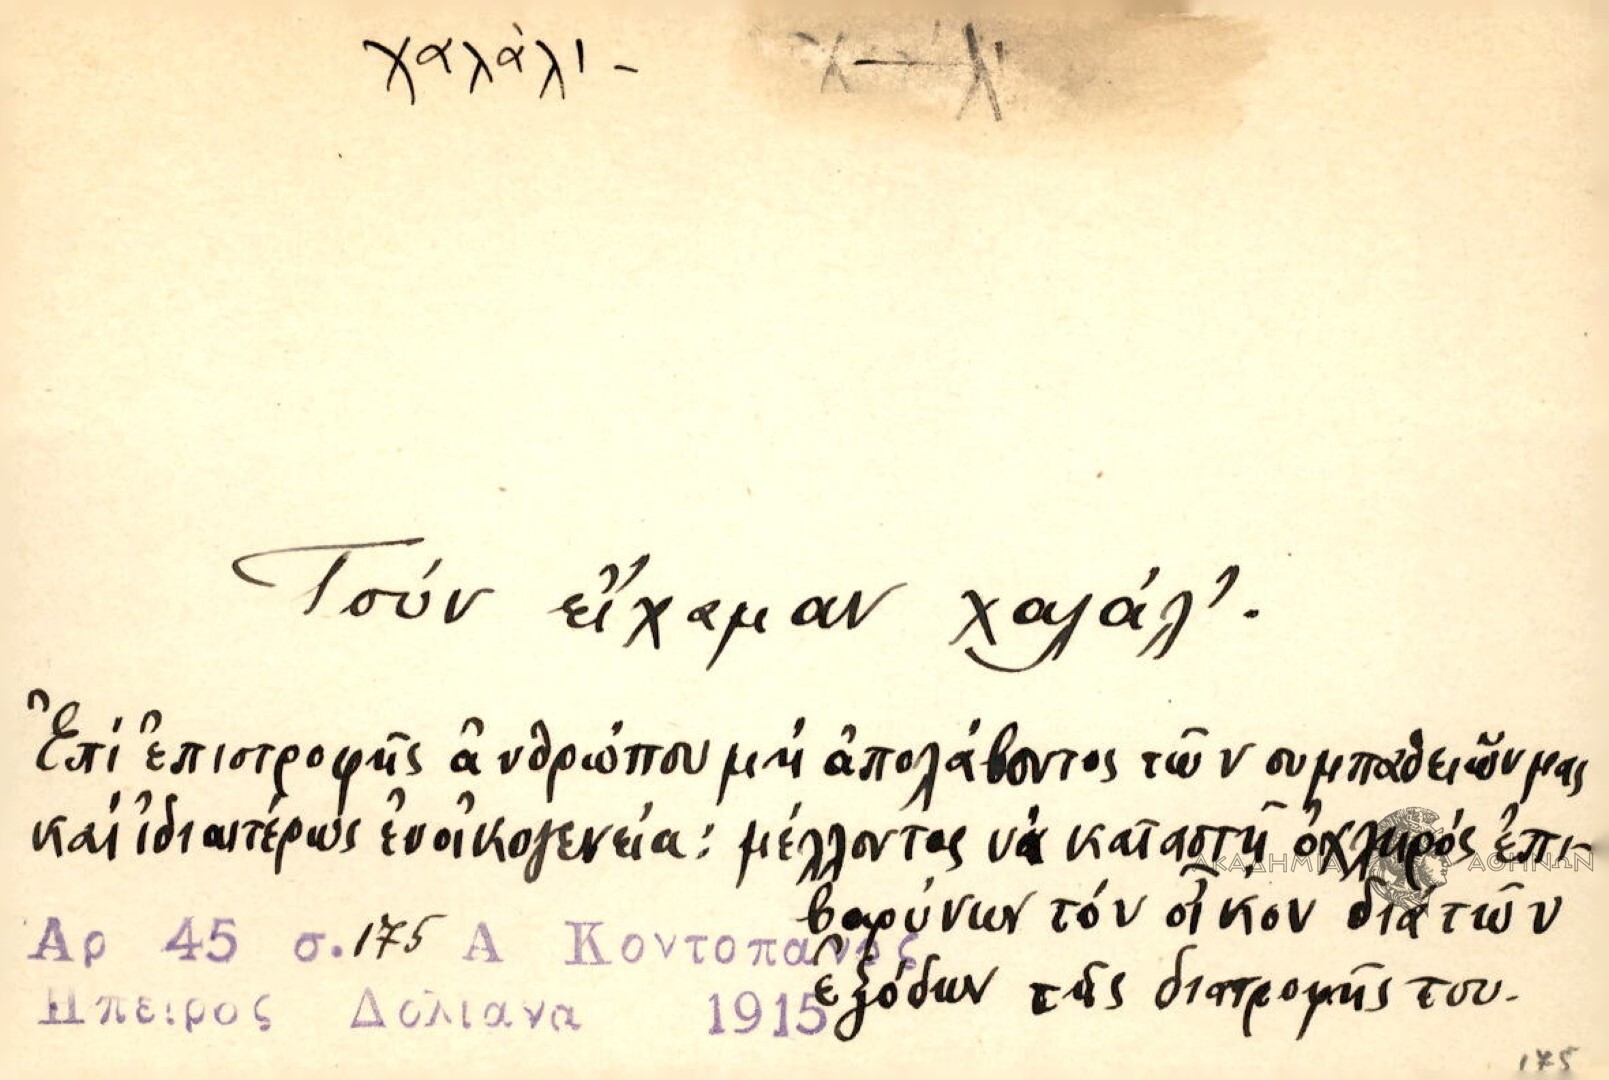 χαλάλι -
Τσύν εἴχαμαν χαλάλ'.
Ἐπί ἐπιστροφῆς ἀνθρώπου μή ἀπολάβοντος τῶν συμπαθειῶν μας
καί ἰδιαιτέρως ἐν οἰκογενεία: μέλλοντος νά καταστῇ ὀχληρός ἐπι-
βαρύνων τόν οἶκον διά τῶν
ἐξόδων τῆς διατροφῆς του.
Αρ 45 σ. 175 Α Κοντοπανος
Ηπειρος Δολιανα 1915
ΑΚΑΔΗΜΙΑ ΑΘΗΝΩΝ
175